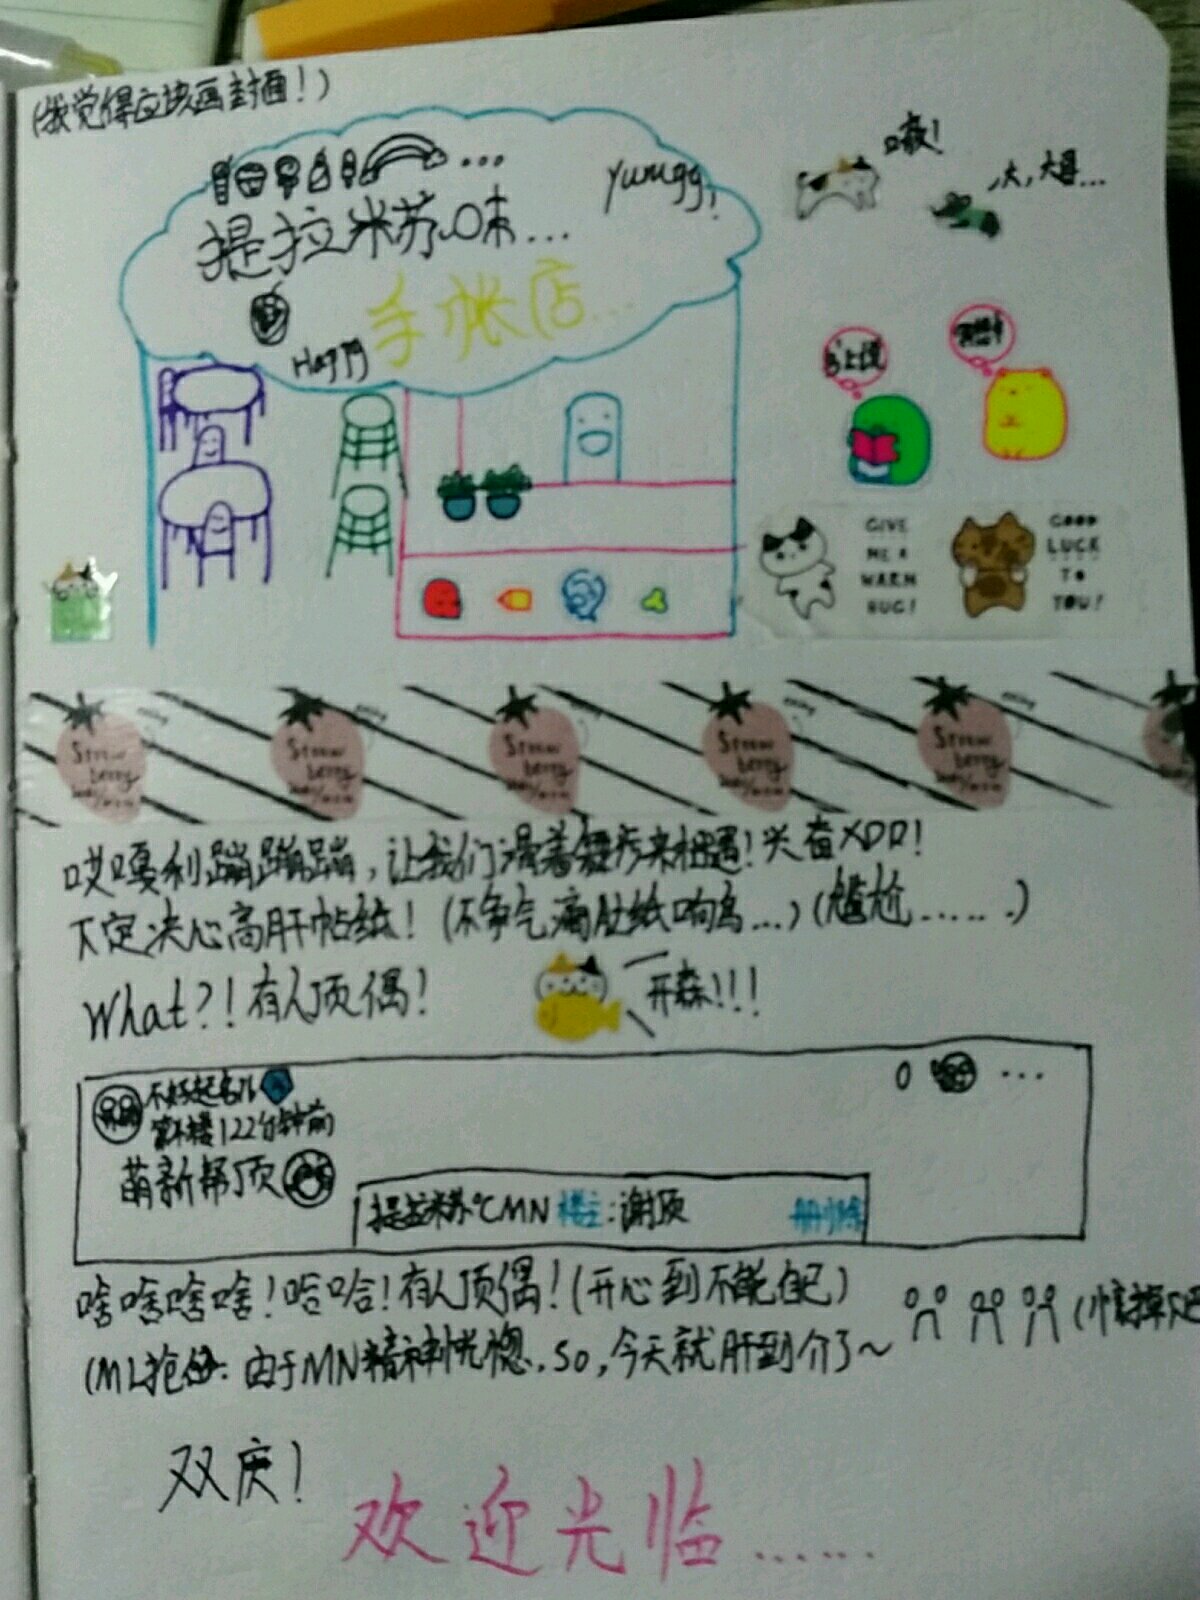 (我觉得应该画封面!)
提拉米苏味...
Yumgg,
手帐店...
Happy
嗷!
大,大哥...
书上说
GIVE
ME A
WARM
HUG!
GOOD
LUCK
TO
YOU!
Straw
berry
Straw
berry
Straw
berry
Straw
berry
Straw
berry
哎嘎利蹦蹦蹦,让我们滑着舞步来相遇!兴奋XDD!
下定决心高肝帖纸!(不争气滴肚纸响鸟...)(尴尬......)
What?!有人顶偶!
开森!!!
不好起名儿
第不楼122分钟前
0 ...
萌新帮顶
提拉米苏℃MN 楼主:谢顶 删除
啥啥啥啥!哈哈!有人顶偶!(开心到不能自己)
(ML抢台:由于MN精神恍惚,so,今天就肝到介了~
双庆!
欢迎光临......